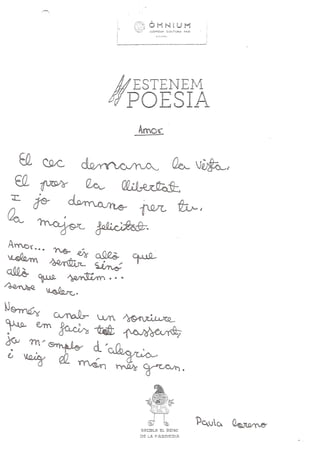 ÒMNIUM
ESTENEM
POESIA
Amor
El cec demana la vista,
El pres la llibertat,
I jo demano per tu,
la major felicitat.
Amor... no és allò que
volem sentir sinó
allò que sentim...
sense voler.
Només amb un somriure
que em facis tot passant,
ja m'omplo d'alegria
i veig el món més gran.
Paula Loreno